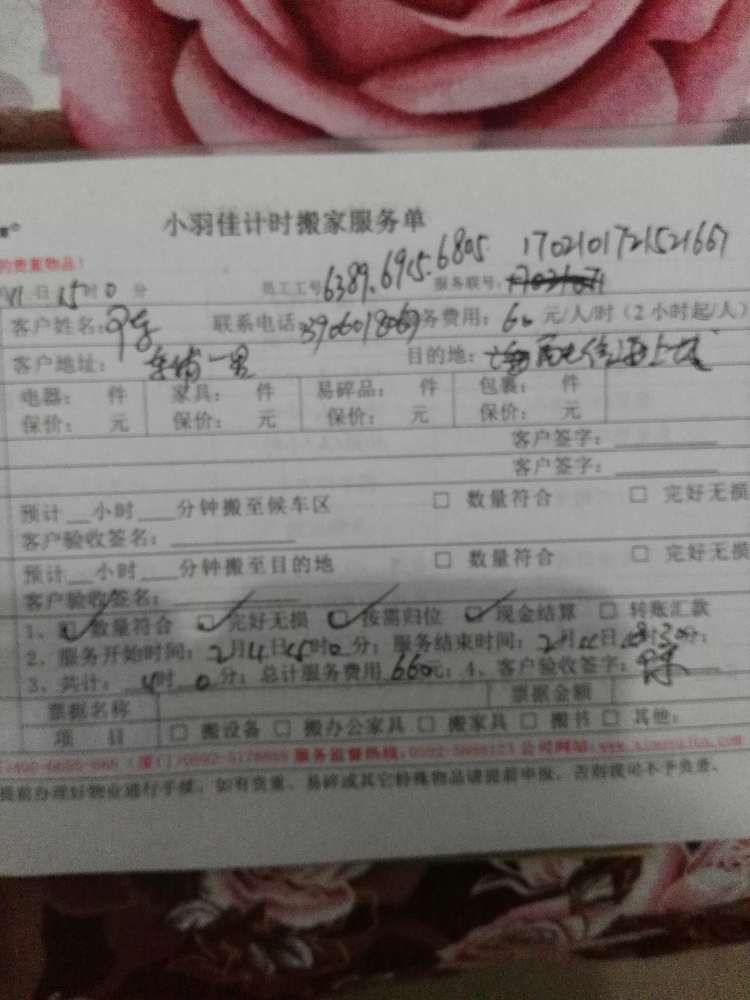 小羽佳计时搬家服务单
的贵重物品!
日 15时0分 员工工号6389.6915.6805 服务联号: 1702101721521667
客户姓名: 联系电话: 务费用: 60元/人/时(2小时起/人)
客户地址: 目的地:
电器: 件 家具: 件 易碎品: 件 包裹: 件
保价: 元 保价: 元 保价: 元 保价: 元
客户签字:
客户签字:
预计__小时___分钟搬至候车区 □ 数量符合 □ 完好无损
客户验收签名:
预计__小时___分钟搬至目的地 □ 数量符合 □ 完好无损
客户验收签名:
1、☑ 数量符合 ☑ 完好无损 ☑ 按需归位 ☑ 现金结算 □ 转账汇款
2、服务开始时间: 2月11日15时0分; 服务结束时间: 2月11日 时30分;
3、共计: 时0分; 总计服务费用660元; 4、客户验收签字:
票据名称 票据金额
项 目 □ 搬设备 □ 搬办公家具 □ 搬家具 □ 搬书 □ 其他:
服务监督热线: 公司网站:
提前办理好物业通行手续, 如有贵重、易碎或其它特殊物品请提前申报, 否则我司不予负责。